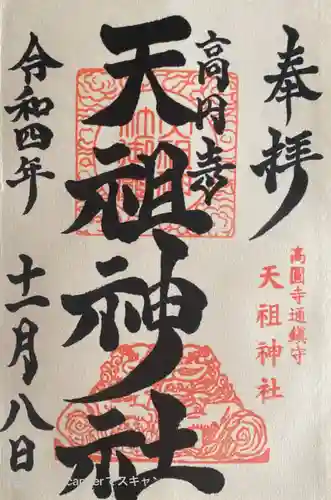 奉拝
高円寺
天祖神社
令和四年
十一月八日
高圓寺通鎮守
天祖神社
でスキャン